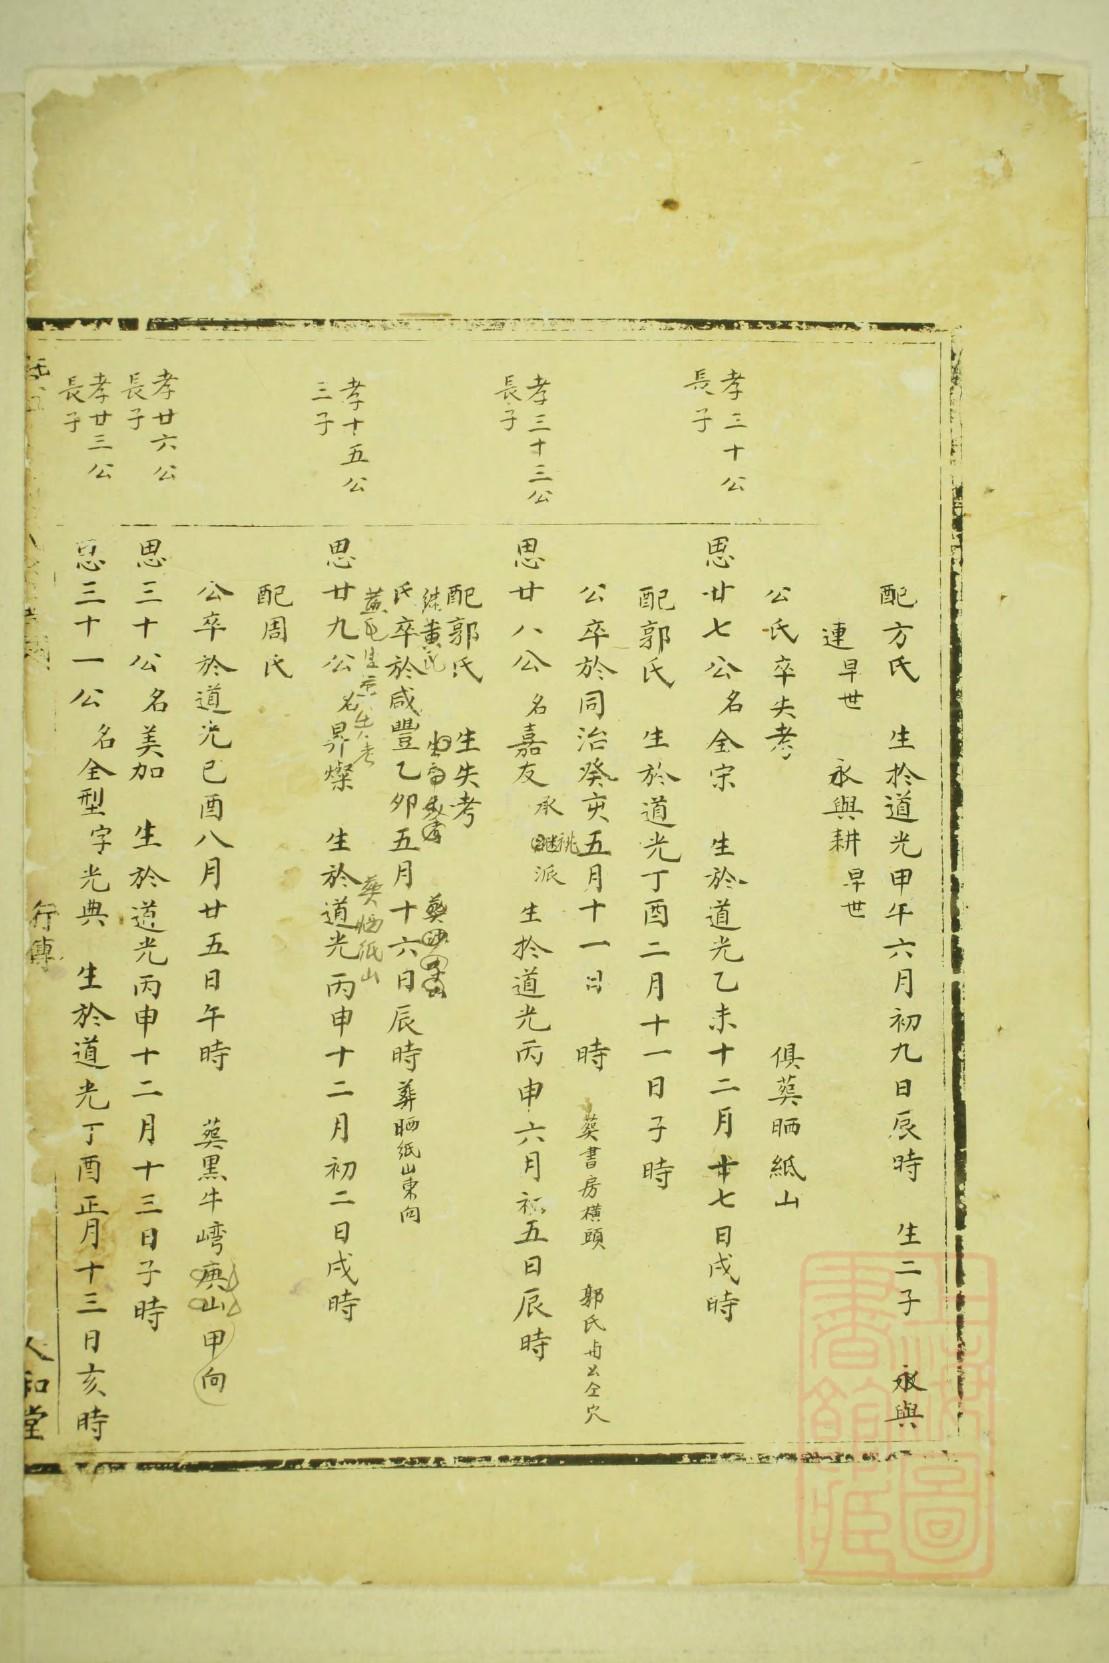 配方氏 生於道光甲午六月初九日辰時 生二子 永與
連早世 永與耕早世
公氏卒失考 俱葬晒紙山
孝三十公
長子
思廿七公 名金宗 生於道光乙未十二月廿七日戌時
配郭氏 生於道光丁酉二月十一日子時
公卒於同治癸亥五月十一日 時 葬書房橫頭 郭氏与公仝穴
孝三十三公
長子
思廿八公 名嘉友 承祧派 生於道光丙申六月初五日辰時
配郭氏 生失考
继黄氏
氏卒於咸豐乙卯五月十六日辰時 葬晒紙山東向
黄氏生卒失考 葬晒紙山
孝十五公
三子
思廿九公 名昇燦 生於道光丙申十二月初二日戌時
配周氏
公卒於道光己酉八月廿五日午時 葬黑牛嶹庚山甲向
孝廿六公
長子
思三十公 名美加 生於道光丙申十二月十三日子時
孝廿三公
長子
思三十一公 名全型字光典 生於道光丁酉正月十三日亥時
行傳
人和堂
上海圖書館藏